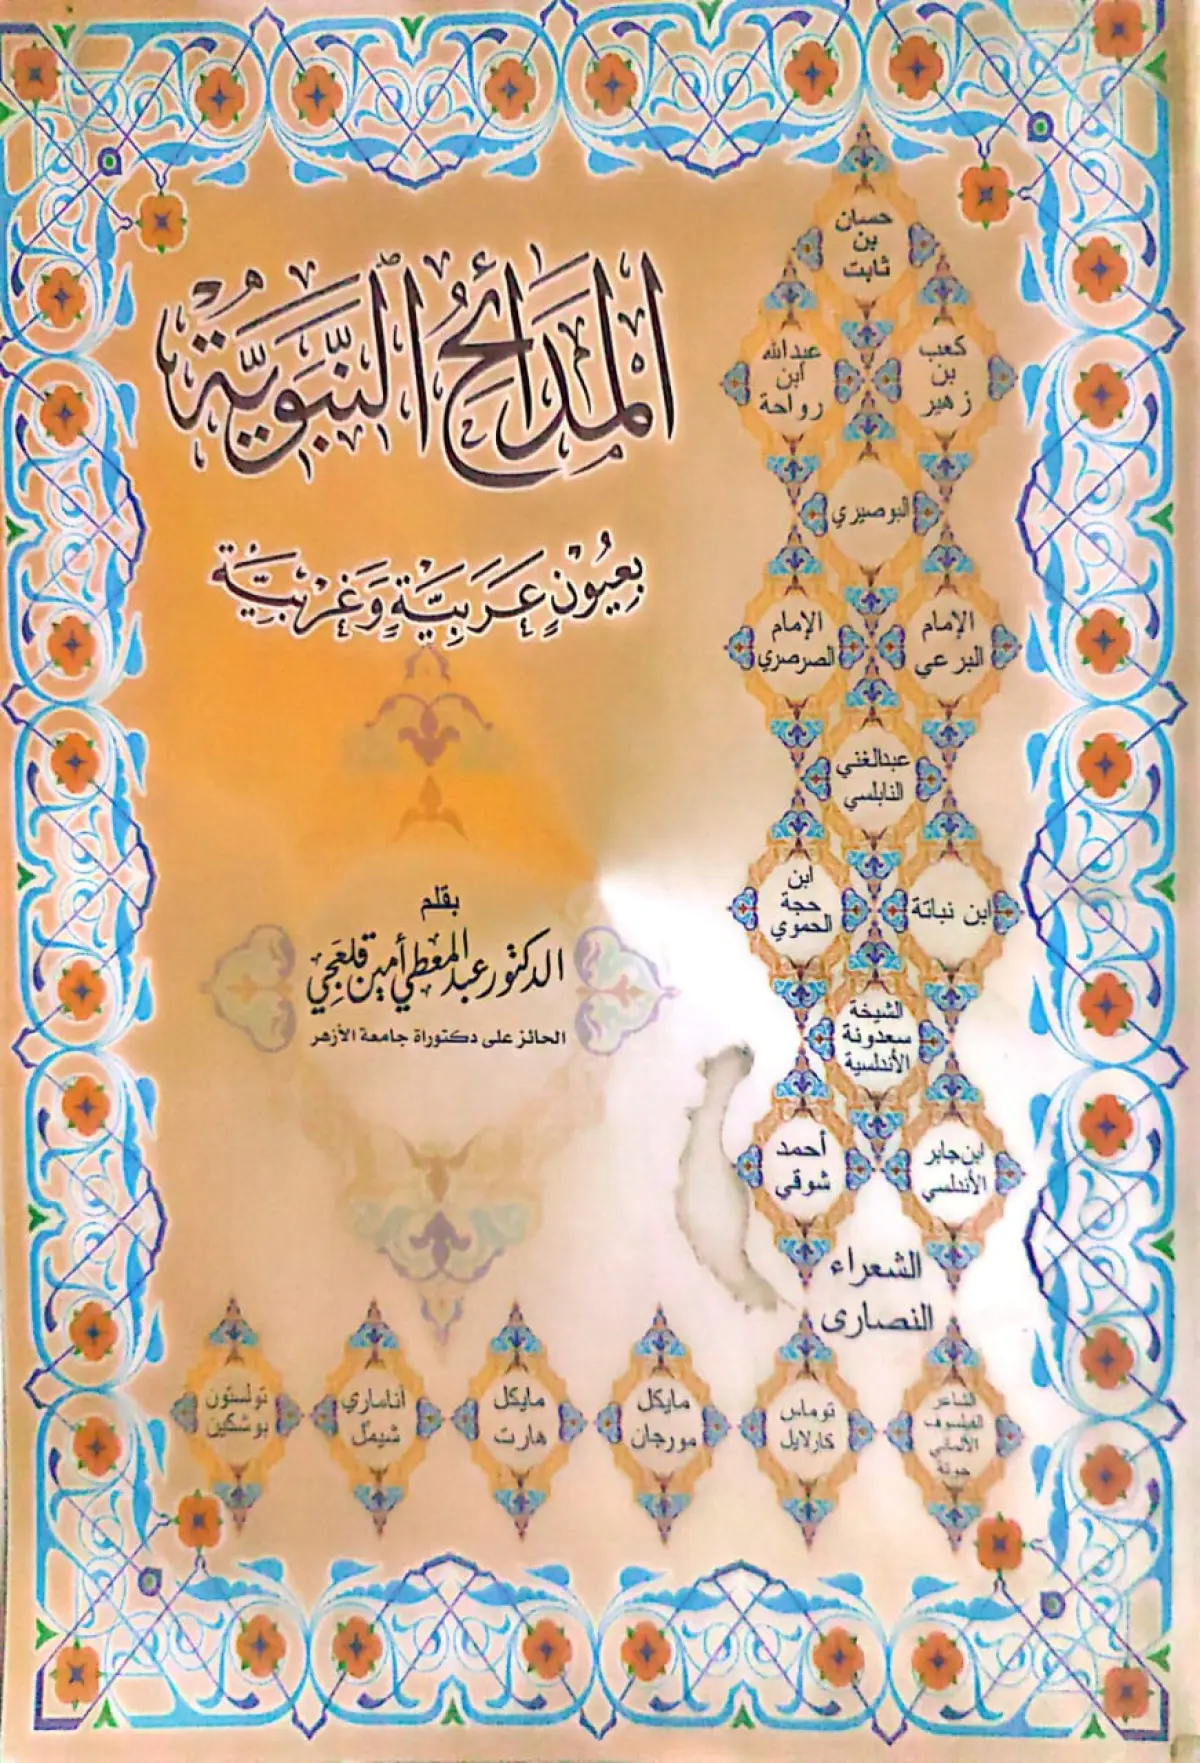 المَدَائِحُ النَّبَوِيَّةُ
بِعُيُونٍ عَرَبِيَّةٍ وَغَرْبِيَّةٍ
بقلم
الدكتور عبد المعطي أمين قلعجي
الحائز على دكتوراة جامعة الأزهر
حسان
بن
ثابت
كعب
بن
زهير
عبدالله
ابن
رواحة
البوصيري
الإمام
البرعي
الإمام
الصرصري
عبدالغني
النابلسي
ابن نباتة
ابن
حجة
الحموي
الشيخة
سعدونة
الأندلسية
ابن جابر
الأندلسي
أحمد
شوقي
الشعراء
النصارى
الشاعر
الفيلسوف
الألماني
جوتة
توماس
كارلايل
مايكل
مورجان
مايكل
هارت
أناماري
شيمل
تولستون
بوشكين